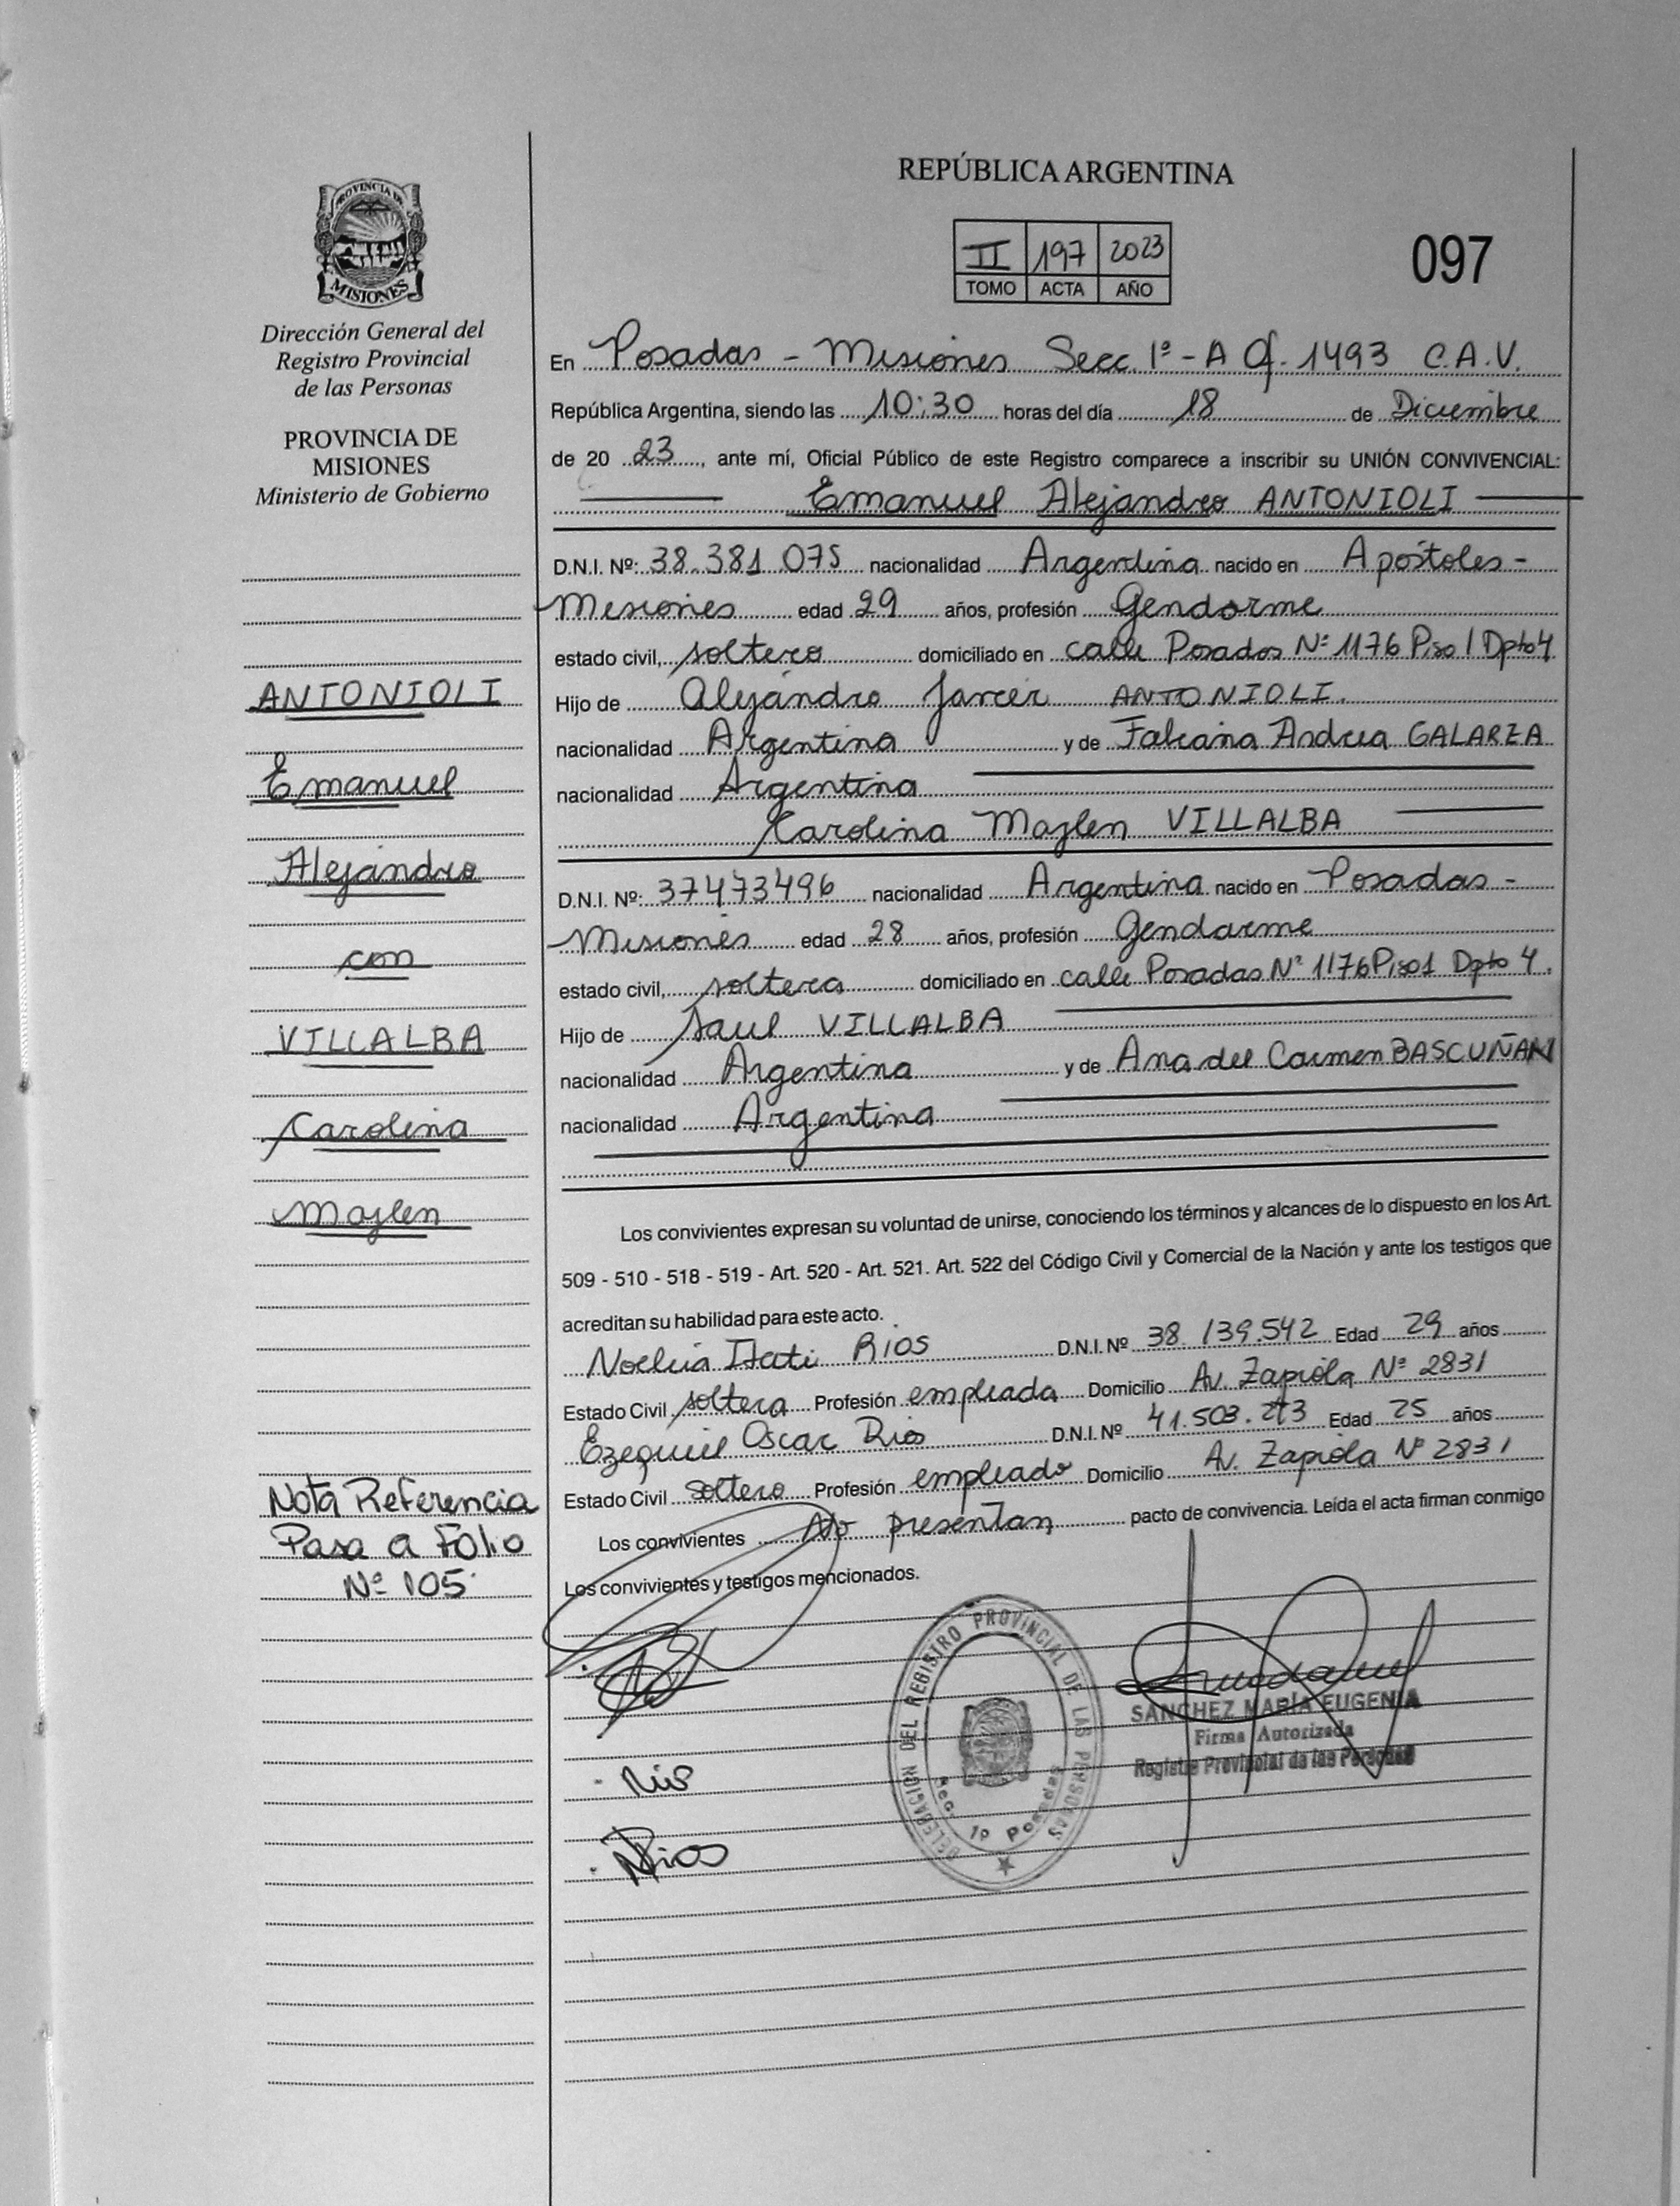 REPÚBLICA ARGENTINA
II 197 2023
TOMO ACTA AÑO
097
PROVINCIA DE
MISIONES
Dirección General del
Registro Provincial
de las Personas
PROVINCIA DE
MISIONES
Ministerio de Gobierno
ANTONIOLI
Emanuel
Alejandro
con
VILLALBA
Carolina
Maylen
Nota Referencia
Pasa a Folio
Nº 105
En Posadas - Misiones Secc. 1ª - A Of. 1493 C.A.V.
República Argentina, siendo las 10:30 horas del día 18 de Diciembre
de 20 23, ante mí, Oficial Público de este Registro comparece a inscribir su UNIÓN CONVIVENCIAL:
Emanuel Alejandro ANTONIOLI
D.N.I. Nº: 38.381.075 nacionalidad Argentina nacido en Apóstoles -
Misiones edad 29 años, profesión Gendarme
estado civil, soltero domiciliado en calle Posadas Nº 1176 Piso 1 Dpto 4
Hijo de Alejandro Javier ANTONIOLI.
nacionalidad Argentina y de Fabiana Andrea GALARZA
nacionalidad Argentina
Carolina Maylen VILLALBA
D.N.I. Nº: 37473496 nacionalidad Argentina nacido en Posadas -
Misiones edad 28 años, profesión Gendarme
estado civil, soltera domiciliado en calle Posadas Nº 1176 Piso 1 Dpto 4.
Hijo de Saul VILLALBA
nacionalidad Argentina y de Ana del Carmen BASCUÑAN
nacionalidad Argentina
Los convivientes expresan su voluntad de unirse, conociendo los términos y alcances de lo dispuesto en los Art.
509 - 510 - 518 - 519 - Art. 520 - Art. 521. Art. 522 del Código Civil y Comercial de la Nación y ante los testigos que
acreditan su habilidad para este acto.
Noelia Itati RIOS D.N.I. Nº 38.139.542 Edad 29 años
Estado Civil soltera Profesión empleada Domicilio Av. Zapiola Nº 2831
Ezequiel Oscar Rios D.N.I. Nº 41.503.273 Edad 25 años
Estado Civil soltero Profesión empleado Domicilio Av. Zapiola Nº 2831
Los convivientes No presentan pacto de convivencia. Leída el acta firman conmigo
Los convivientes y testigos mencionados.
DELEGACION DEL REGISTRO PROVINCIAL DE LAS PERSONAS
Sec. 1º Posadas
SANCHEZ MARÍA EUGENIA
Firma Autorizada
Registro Provincial de las Personas
Rios